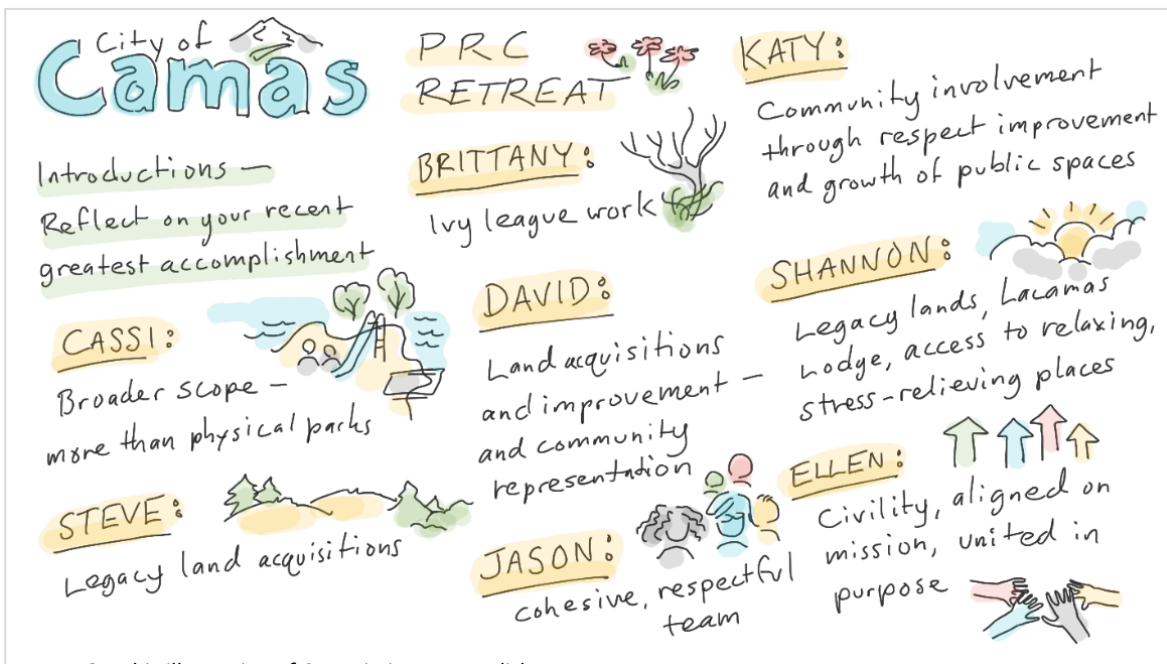 City of
Camas
Introductions —
Reflect on your recent
greatest accomplishment
CASSI:
Broader scope —
more than physical parks
STEVE:
Legacy land acquisitions
PRC
RETREAT
BRITTANY:
Ivy league work
DAVID:
Land acquisitions
and improvement —
and community
representation
JASON:
cohesive, respectful
team
KATY:
Community involvement
through respect improvement
and growth of public spaces
SHANNON:
Legacy lands, Lacamas
Lodge, access to relaxing,
stress-relieving places
ELLEN:
Civility, aligned on
mission, united in
purpose